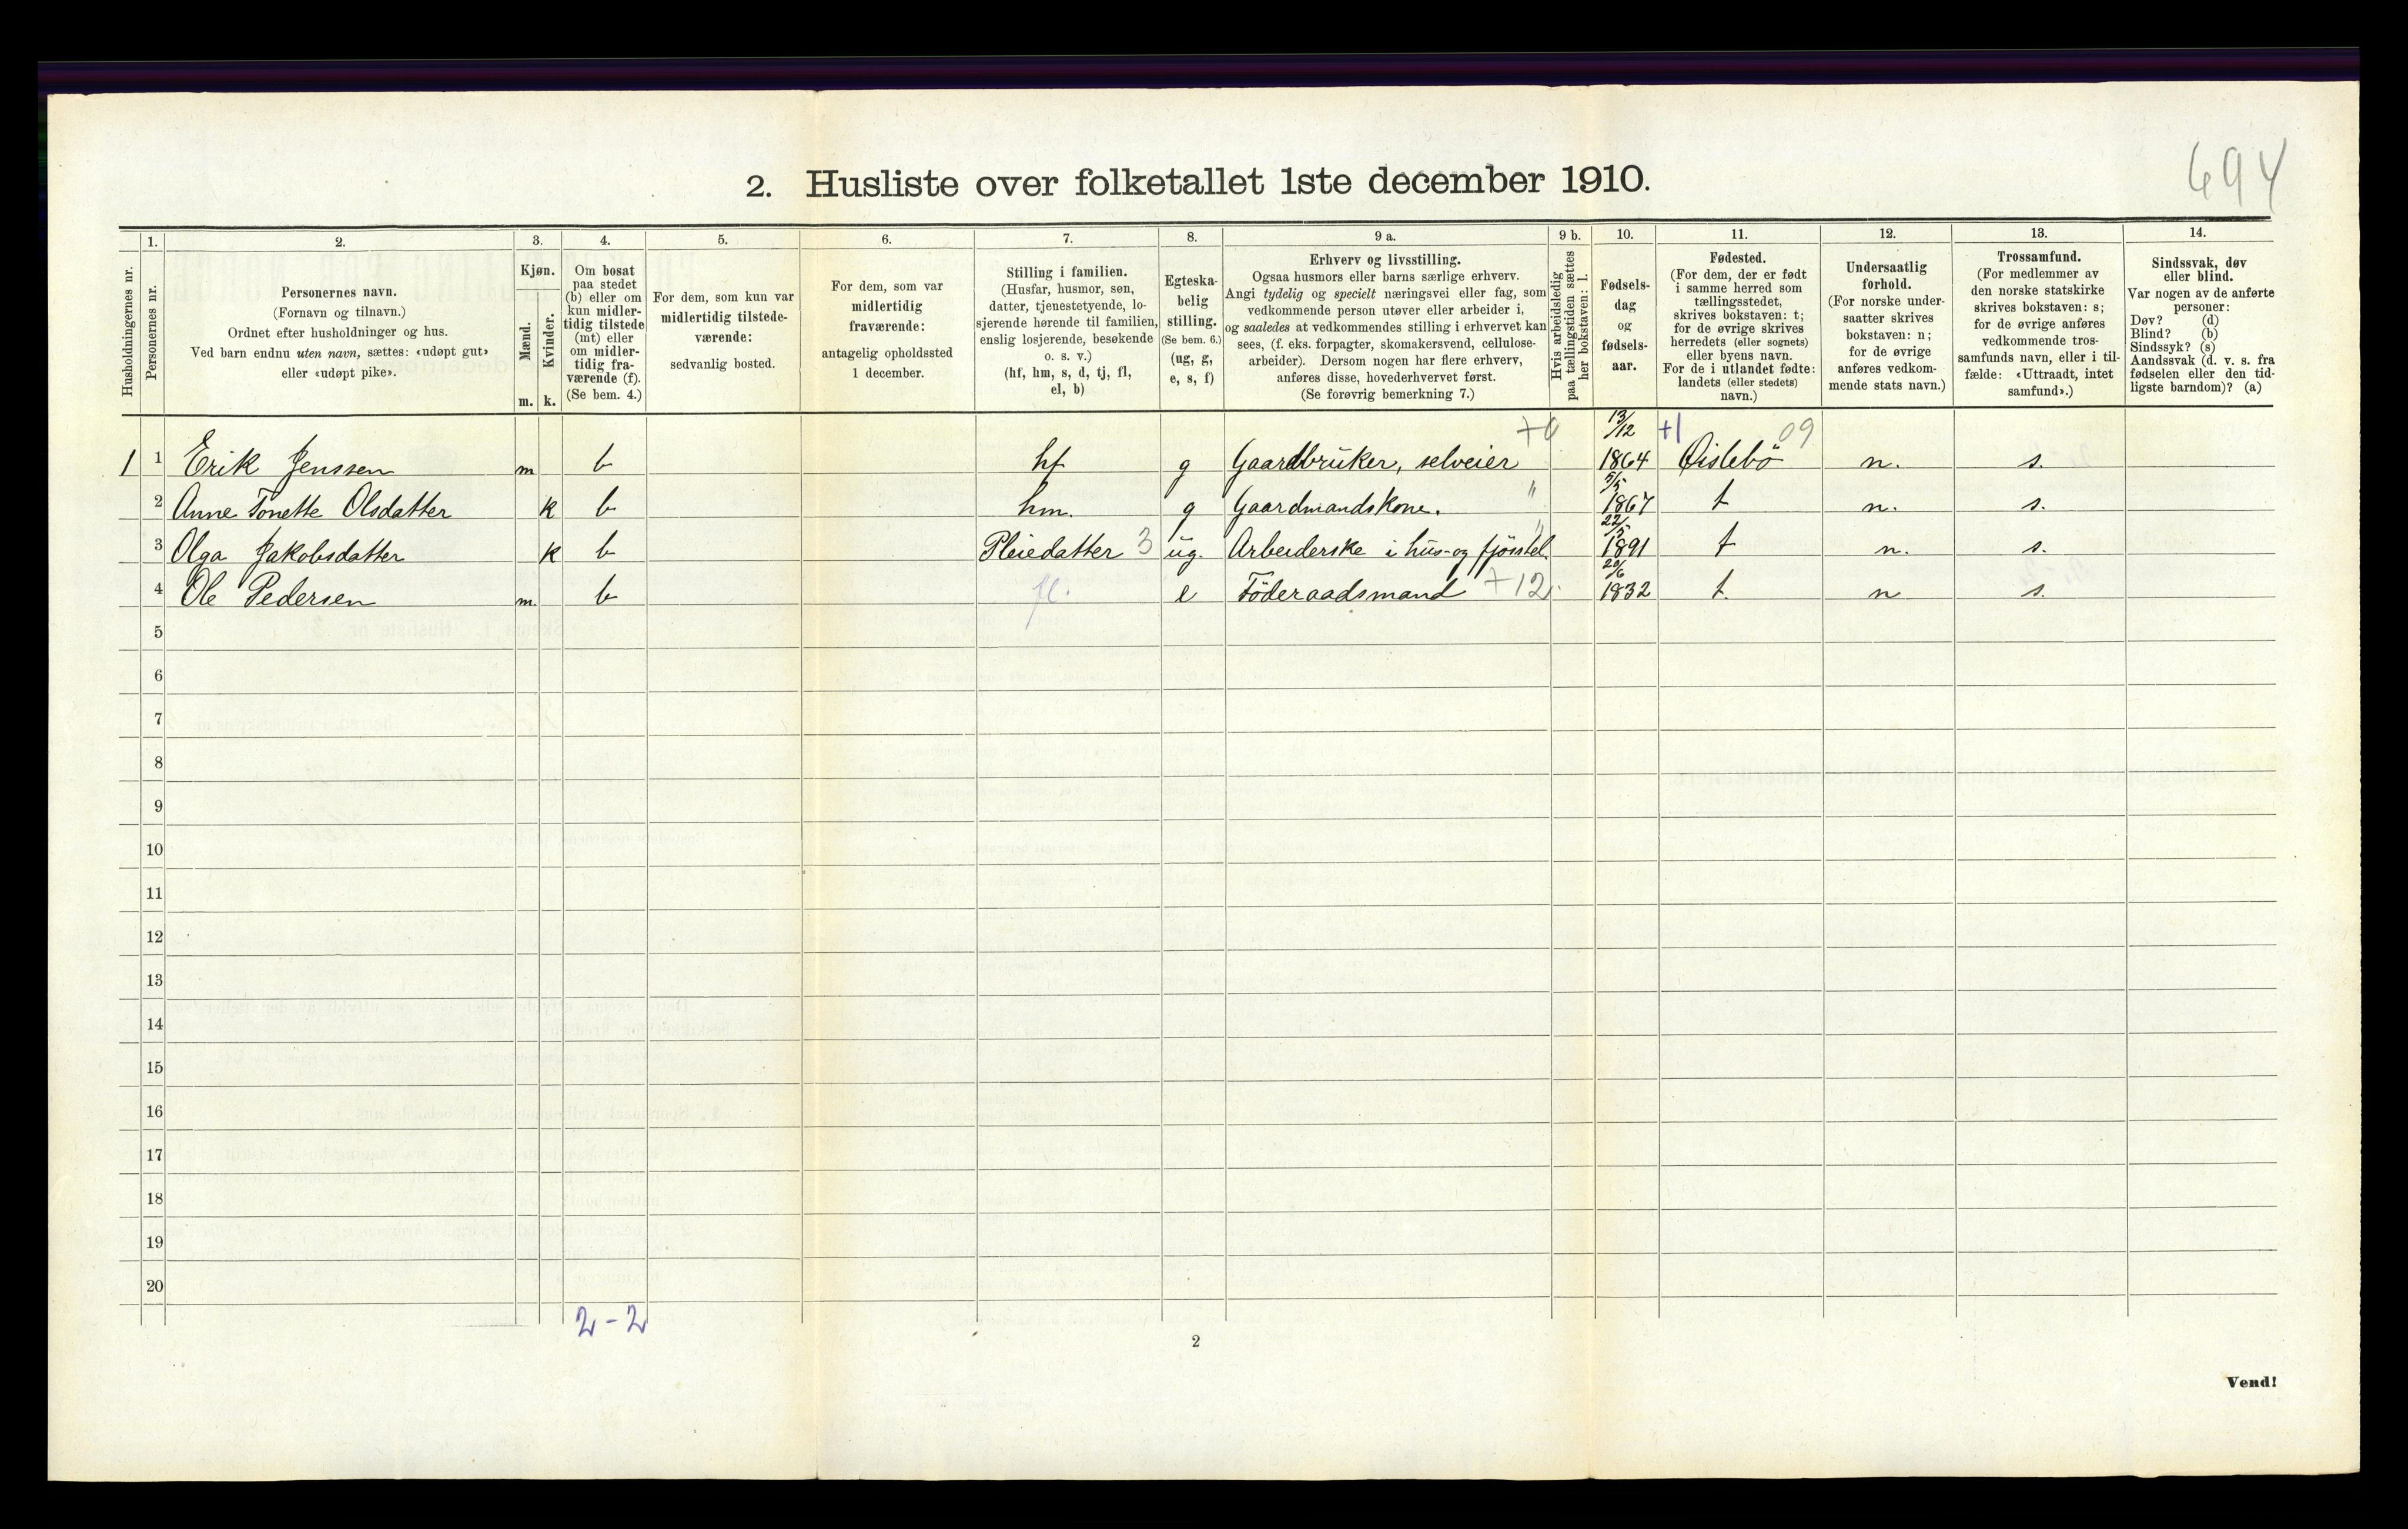 694
2. Husliste over folketallet 1ste december 1910.
1. 2. 3. 4. 5. 6. 7. 8. 9 a. 9 b. 10. 11. 12. 13. 14.
Husholdningernes nr.
Personernes nr.
Personernes navn.
(Fornavn og tilnavn.)
Ordnet efter husholdninger og hus.
Ved barn endnu uten navn, sættes: «udøpt gut»
eller «udøpt pike».
Kjøn.
Mænd.
Kvinder.
m. k.
Om bosat
paa stedet
(b) eller om
kun midler-
tidig tilstede
(mt) eller
om midler-
tidig fra-
værende (f).
(Se bem. 4.)
For dem, som kun var
midlertidig tilstede-
værende:
sedvanlig bosted.
For dem, som var
midlertidig
fraværende:
antagelig opholdssted
1 december.
Stilling i familien.
(Husfar, husmor, søn,
datter, tjenestetyende, lo-
sjerende hørende til familien,
enslig losjerende, besøkende
o. s. v.)
(hf, hm, s, d, tj, fl,
el, b)
Egteska-
belig
stilling.
(Se bem. 6.)
(ug, g,
e, s, f)
Erhverv og livsstilling.
Ogsaa husmors eller barns særlige erhverv.
Angi tydelig og specielt næringsvei eller fag, som
vedkommende person utøver eller arbeider i,
og saaledes at vedkommendes stilling i erhvervet kan
sees, (f. eks. forpagter, skomakersvend, cellulose-
arbeider). Dersom nogen har flere erhverv,
anføres disse, hovederhvervet først.
(Se forøvrig bemerkning 7.)
Hvis arbeidsledig
paa tællingstiden sættes
her bokstaven: l.
Fødsels-
dag
og
fødsels-
aar.
Fødested.
(For dem, der er født
i samme herred som
tællingsstedet,
skrives bokstaven: t;
for de øvrige skrives
herredets (eller sognets)
eller byens navn.
For de i utlandet fødte:
landets (eller stedets)
navn.)
Undersaatlig
forhold.
(For norske under-
saatter skrives
bokstaven: n;
for de øvrige
anføres vedkom-
mende stats navn.)
Trossamfund.
(For medlemmer av
den norske statskirke
skrives bokstaven: s;
for de øvrige anføres
vedkommende tros-
samfunds navn, eller i til-
fælde: «Uttraadt, intet
samfund».)
Sindssvak, døv
eller blind.
Var nogen av de anførte
personer:
Døv? (d)
Blind? (b)
Sindssyk? (s)
Aandssvak (d. v. s. fra
fødselen eller den tid-
ligste barndom)? (a)
+0 13/12 +1 09
1 1 Erik Jenssen m b hf g Gaardbruker, selveier 1864 Øislebö n. s.
5/5
2 Anne Tonette Olsdatter k b hm. g Gaardmandskone. " 1867 t n. s.
22/5
3 Olga Jakobsdatter k b Pleiedatter 3 ug. Arbeiderske i hus- og fjösstel. " 1891 t n. s.
20/6
4 Ole Pedersen m. b fl. e Föderaadsmand +12. 1832 t. n s.
5
6
7
8
9
10
11
12
13
14
15
16
17
18
19
20
2-2
2
Vend!